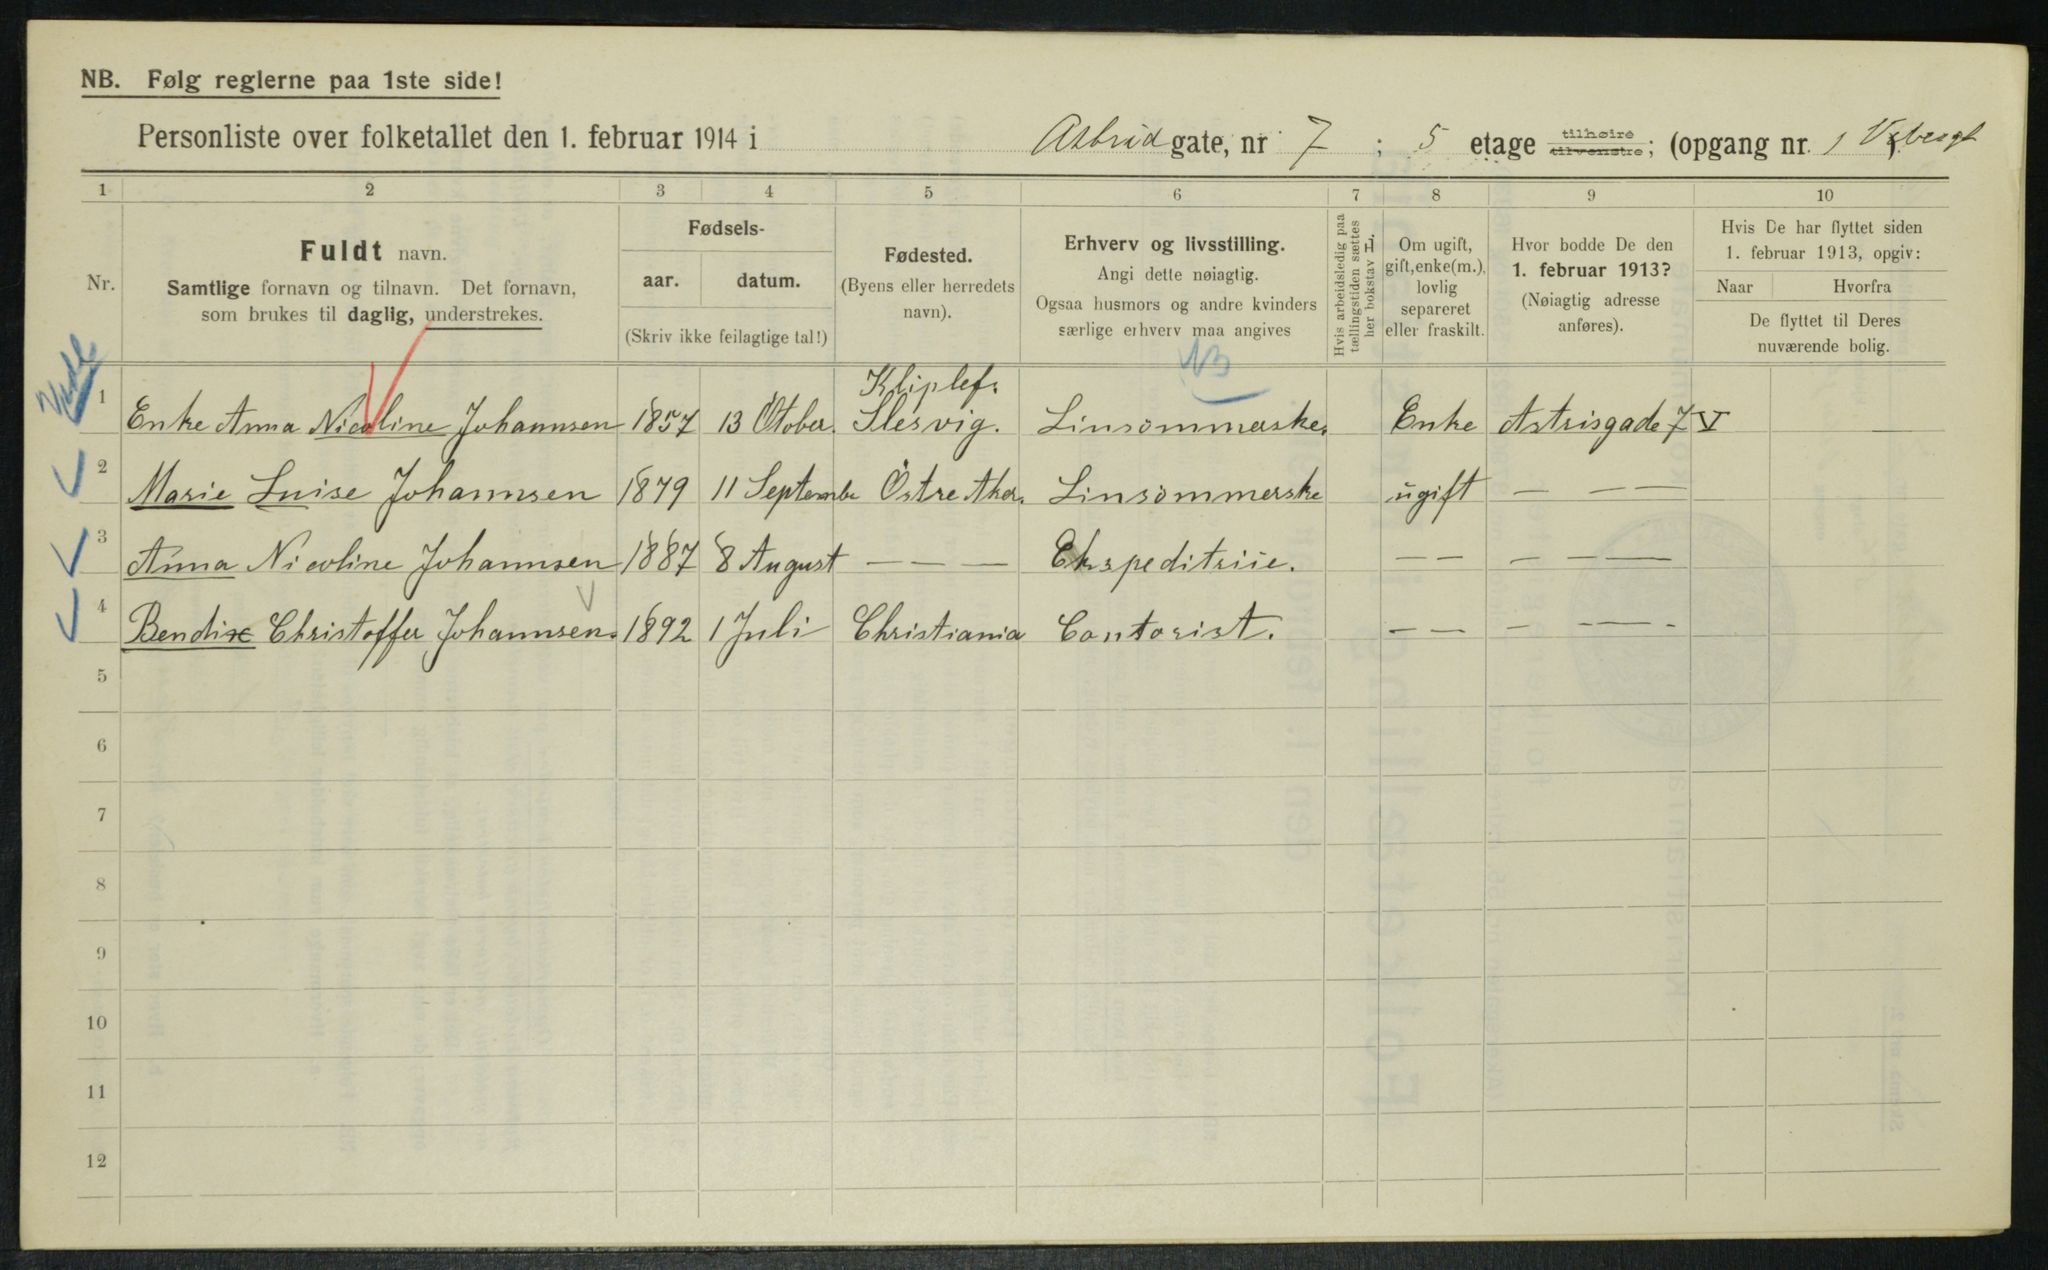 NB. Følg reglerne paa 1ste side!
Personliste over folketallet den 1. februar 1914 i Astrid gate, nr 7 ; 5 etage tilhøire tilvenstre; (opgang nr.
1 2 3 4 5 6 7 8 9 10
Nr.
Fuldt navn.
Samtlige fornavn og tilnavn. Det fornavn,
som brukes til daglig, understrekes.
Fødsels-
aar. datum.
(Skriv ikke feilagtige tal!)
Fødested.
(Byens eller herredets
navn).
Erhverv og livsstilling.
Angi dette nøiagtig.
Ogsaa husmors og andre kvinders
særlige erhverv maa angives
Hvis arbeidsledig paa
tællingstiden sættes
her bokstav L.
Om ugift,
gift, enke(m.),
lovlig
separeret
eller fraskilt.
Hvor bodde De den
1. februar 1913?
(Nøiagtig adresse
anføres).
Hvis De har flyttet siden
1. februar 1913, opgiv:
Naar Hvorfra
De flyttet til Deres
nuværende bolig.
NB
Kliplef.
1 Enke Anna Nicoline Johannsen 1857 13 Otober. Slesvig. Linsömmerske. Enke Astrisgade 7 V
2 Marie Luise Johannsen 1879 11 Septembr Östre Aker. Linsömmerske ugift — — —
3 Anna Nicoline Johannsen 1887 8 August — — — Ekspeditriie. — — — — —
4 Bendix Christoffer Johannsen. 1892 1 Juli Christiania Contorist. — — — — -
5
6
7
8
9
10
11
12